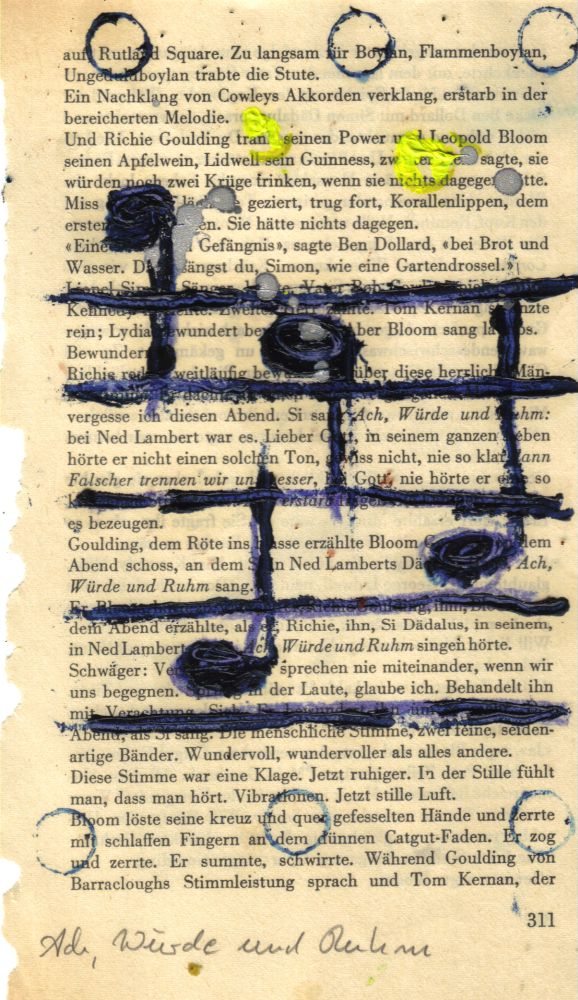 auf Rutland Square. Zu langsam für Boylan, Flammenboylan,
Ungeduldboylan trabte die Stute.
Ein Nachklang von Cowleys Akkorden verklang, erstarb in der
bereicherten Melodie.
Und Richie Goulding trank seinen Power und Leopold Bloom
seinen Apfelwein, Lidwell sein Guinness, zweiter sagte, sie
würden noch zwei Krüge trinken, wenn sie nichts dagegen hätte.
Miss geziert, trug fort, Korallenlippen, dem
ersten Sie hätte nichts dagegen.
«Eine Gefängnis», sagte Ben Dollard, «bei Brot und
Wasser. Da sängst du, Simon, wie eine Gartendrossel.»
Lionel
Kennedy Zweiter Herr zahlte. Tom Kernan
rein; Lydia, bewundert Aber Bloom sang
Bewundernd
Richie weitläufig über diese herrliche Män-
vergesse ich diesen Abend. Si sang Ach, Würde und Ruhm:
bei Ned Lambert war es. Lieber Gott, in seinem ganzen Leben
hörte er nicht einen solchen Ton, gewiss nicht, nie so klar dann
Falscher trennen wir uns besser, Gott, nie hörte er eine so
erstarb
es bezeugen.
Goulding, dem Röte ins blasse erzählte Bloom dem
Abend schoss, an dem Si in Ned Lamberts Ach,
Würde und Ruhm sang.
Er
dem Abend erzählte, als er, Richie, ihn, Si Dädalus, in seinem,
in Ned Lamberts Ach, Würde und Ruhm singen hörte.
Schwäger: sprechen nie miteinander, wenn wir
uns begegnen. Sprung in der Laute, glaube ich. Behandelt ihn
mit Verachtung.
Abend, als Si sang. Die menschliche Stimme, zwei feine, seiden-
artige Bänder. Wundervoll, wundervoller als alles andere.
Diese Stimme war eine Klage. Jetzt ruhiger. In der Stille fühlt
man, dass man hört. Vibrationen. Jetzt stille Luft.
Bloom löste seine kreuz und quer gefesselten Hände und zerrte
mit schlaffen Fingern an dem dünnen Catgut-Faden. Er zog
und zerrte. Er summte, schwirrte. Während Goulding von
Barracloughs Stimmleistung sprach und Tom Kernan, der
311
Ach, Würde und Ruhm